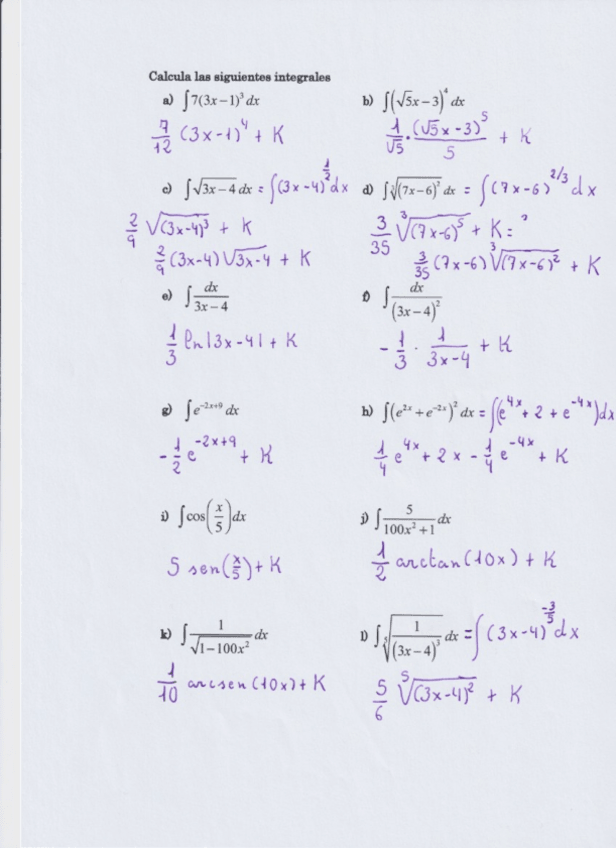 Calcula las siguientes integrales
a) ∫7(3x−1)³ dx
7/12 (3x−1)⁴ + K
b) ∫(√5x−3)⁴ dx
1/√5 · (√5x−3)⁵/5 + K
c) ∫√(3x−4) dx = ∫(3x−4)^(1/2) dx
2/9 √((3x−4)³) + K
2/9 (3x−4)√(3x−4) + K
d) ∫∛((7x−6)²) dx = ∫(7x−6)^(2/3) dx
3/35 ∛((7x−6)⁵) + K =
3/35 (7x−6)∛((7x−6)²) + K
e) ∫dx/(3x−4)
1/3 ln|3x−4| + K
f) ∫dx/(3x−4)²
−1/3 · 1/(3x−4) + K
g) ∫e^(−2x+9) dx
−1/2 e^(−2x+9) + K
h) ∫(e^(2x)+e^(−2x))² dx = ∫(e^(4x) + 2 + e^(−4x))dx
1/4 e^(4x) + 2x − 1/4 e^(−4x) + K
i) ∫cos(x/5)dx
5 sen(x/5) + K
j) ∫5/(100x²+1) dx
1/2 arctan(10x) + K
k) ∫1/√(1−100x²) dx
1/10 arcsen(10x) + K
l) ∫⁵√(1/(3x−4)³) dx = ∫(3x−4)^(−3/5) dx
5/6 ⁵√((3x−4)²) + K